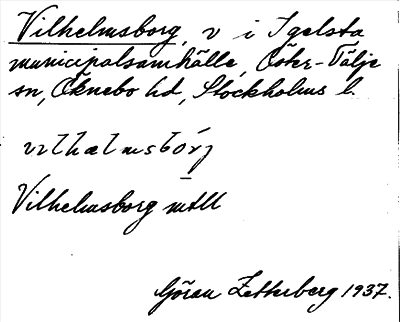 Vilhelmsborg, v i Igelsta
municipalsamhälle, Öster-Tälje
sn, Öknebo hd, Stockholms l.
vɪlhælmsbórj
Vilhelmsborg mtll
Göran Zetterberg 1937.